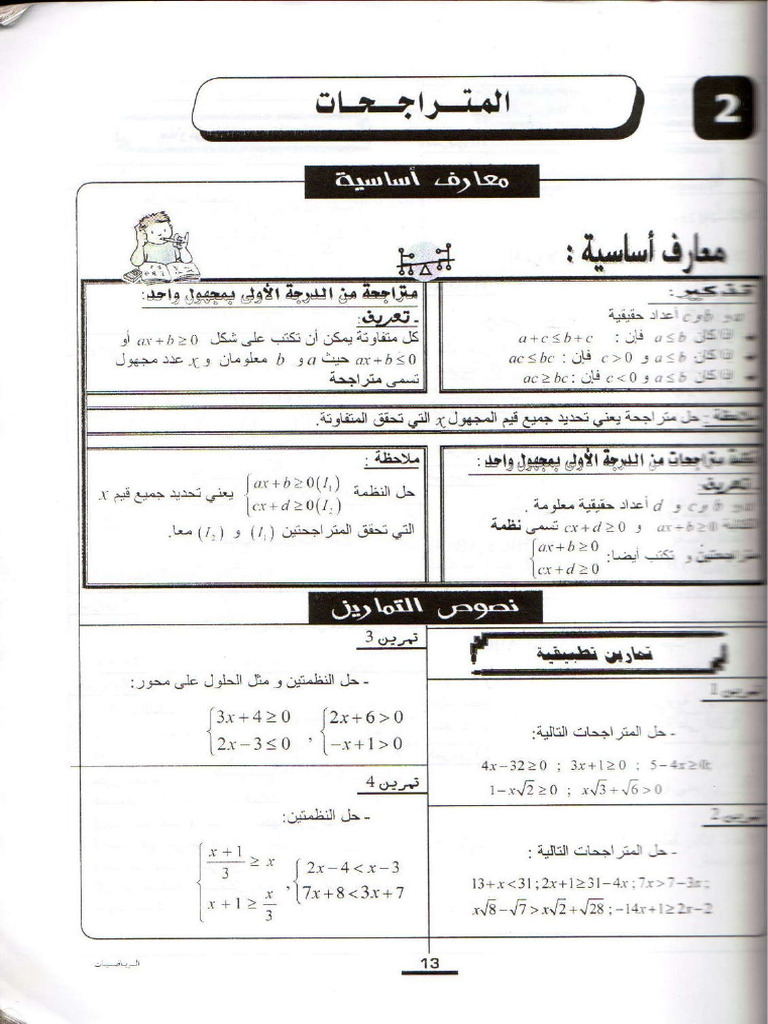 2
المتراجحات
معارف أساسية
معارف أساسية :
تذكير:
b و c أعداد حقيقية
كان a ≤ b فإن : a + c ≤ b + c
كان a ≤ b و c > 0 فإن : ac ≤ bc
كان a ≤ b و c < 0 فإن : ac ≥ bc
متراجحة من الدرجة الأولى بمجهول واحد:
ـ تعريف:
كل متفاوتة يمكن أن تكتب على شكل ax + b ≥ 0 أو
ax + b ≤ 0 حيث a و b معلومان و x عدد مجهول
تسمى متراجحة
ملاحظة : حل متراجحة يعني تحديد جميع قيم المجهول x التي تحقق المتفاوتة.
نظمة متراجحات من الدرجة الأولى بمجهول واحد :
تعريف
b و c و d أعداد حقيقية معلومة .
ax + b ≥ 0 و cx + d ≥ 0 تسمى نظمة
متراجحتين و تكتب أيضا: { ax + b ≥ 0
cx + d ≥ 0
ملاحظة :
حل النظمة { ax + b ≥ 0 (I₁) يعني تحديد جميع قيم x
cx + d ≥ 0 (I₂)
التي تحقق المتراجحتين (I₁) و (I₂) معا.
نصوص التمارين
تمارين تطبيقية
تمرين 1
- حل المتراجحات التالية:
4x − 32 ≥ 0 ; 3x + 1 ≥ 0 ; 5 − 4x ≥ 0
1 − x√2 ≥ 0 ; x√3 + √6 > 0
تمرين 2
- حل المتراجحات التالية :
13 + x < 31 ; 2x + 1 ≥ 31 − 4x ; 7x > 7 − 3x ;
x√8 − √7 > x√2 + √28 ; −14x + 1 ≥ 2x − 2
تمرين 3
- حل النظمتين و مثل الحلول على محور:
{ 3x + 4 ≥ 0 , { 2x + 6 > 0
2x − 3 ≤ 0 −x + 1 > 0
تمرين 4
- حل النظمتين:
{ (x + 1)/3 ≥ x , { 2x − 4 < x − 3
x + 1 ≥ x/3 7x + 8 < 3x + 7
13
الرياضيات